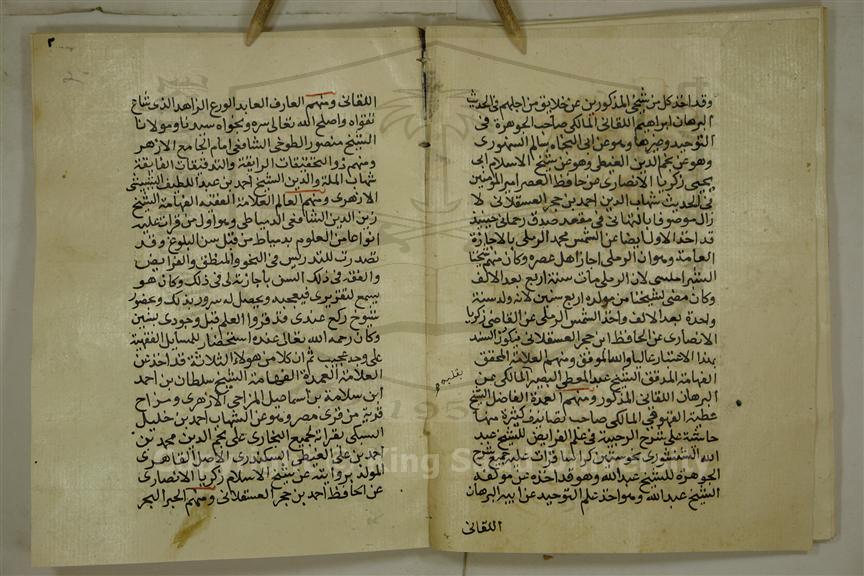 وقد اخذ كل من شيخي المذكورين عن خلايق من اجلهم في الحديث
البرهان ابراهيم اللقاني المالكي صاحب الجوهرة في
التوحيد وغيرها وهو عن ابي النجاه سالم السنهوري
وهو عن نجم الدين الغيطي وهو عن شيخ الاسلام ابي
يحيى زكريا الانصاري عن حافظ العصر امير المؤمنين
في الحديث شهاب الدين احمد بن حجر العسقلاني لا
زال موصوفا بالتهاني في مقعد صدق رحماني حينيذ
قد اخذ الاول ايضا عن الشمس محمد الرملي بالاجازة
العامة وهو ان الرملي اجاز اهل عصره وكان منهم شيخنا
الشبراملسي لان الرملي مات سنة اربع بعد الالف
وكان مضى لشيخنا من مولده اربع سنين لانه ولد سنة
واحدة بعد الالف واخذ الشمس الرملي عن القاضي زكريا
الانصاري عن الحافظ ابن حجر العسقلاني فيكون السند
بهذا الاعتبار عاليا والله الموفق ومنهم العلامة المحقق
الفهامة المدقق الشيخ عبد المعطي البصير المالكي عن
البرهان اللقاني المذكور ومنهم العمدة الفاضل الشيخ
عطية القهوقي المالكي صاحب تصانيف كثيرة منها
حاشية على شرح الرحبية في علم الفرايض للشيخ عبد
الله الشنشوري نحو ستين كراسا قرات عليه جميع شرح
الجوهرة للشيخ عبد الله وهو قد اخذه عن مولفه
الشيخ عبد الله وهو اخذ علم التوحيد عن ابيه البرهان
اللقاني
٢
اللقاني ومنهم العارف العابد الورع الزاهد الذي شاع
تقواه واصلح الله تعالى سره ونجواه سيدنا ومولانا
الشيخ منصور الطوخي الشافعي امام الجامع الازهر
ومنهم ذو التحقيقات الرايقة والتدقيقات الفايقة
شهاب الملة والدين الشيخ احمد بن عبد اللطيف البشبيشي
الازهري ومنهم العالم العلامة الفقيه الفهامة الشيخ
زين الدين الشافعي الدمياطي وهو اول من قرات عليه
انواعا من العلوم بدمياط من قبل سن البلوغ وقد
تصدرت للتدريس في النحو والمنطق والفرايض
والفقه في ذلك السن باجازته لي في ذلك وكان هو
يسمع لتقريري فيعجبه ويحصل له سرور بذلك وحضور
شيوخ ركع عندي قد قروا العلم قبل وجودي بسنين
وكان رحمه الله تعالى عنده استحضار للمسايل الفقهية
على وجه عجيب ثم ان كلا من هولاء الثلاثة قد اخذ عن
العلامة العمدة الفهامة الشيخ سلطان بن احمد
ابن سلامة بن اسماعيل المزاحي الازهري ومزاح
قرية من قرى مصر وهو عن الشهاب احمد بن خليل
السبكي بقراته لجميع البخاري على نجم الدين محمد بن
احمد بن علي الغيطي السكندري الاصل القاهري
المولد بروايته عن شيخ الاسلام زكريا الانصاري
عن الحافظ احمد بن حجر العسقلاني ومنهم الحبر البحر